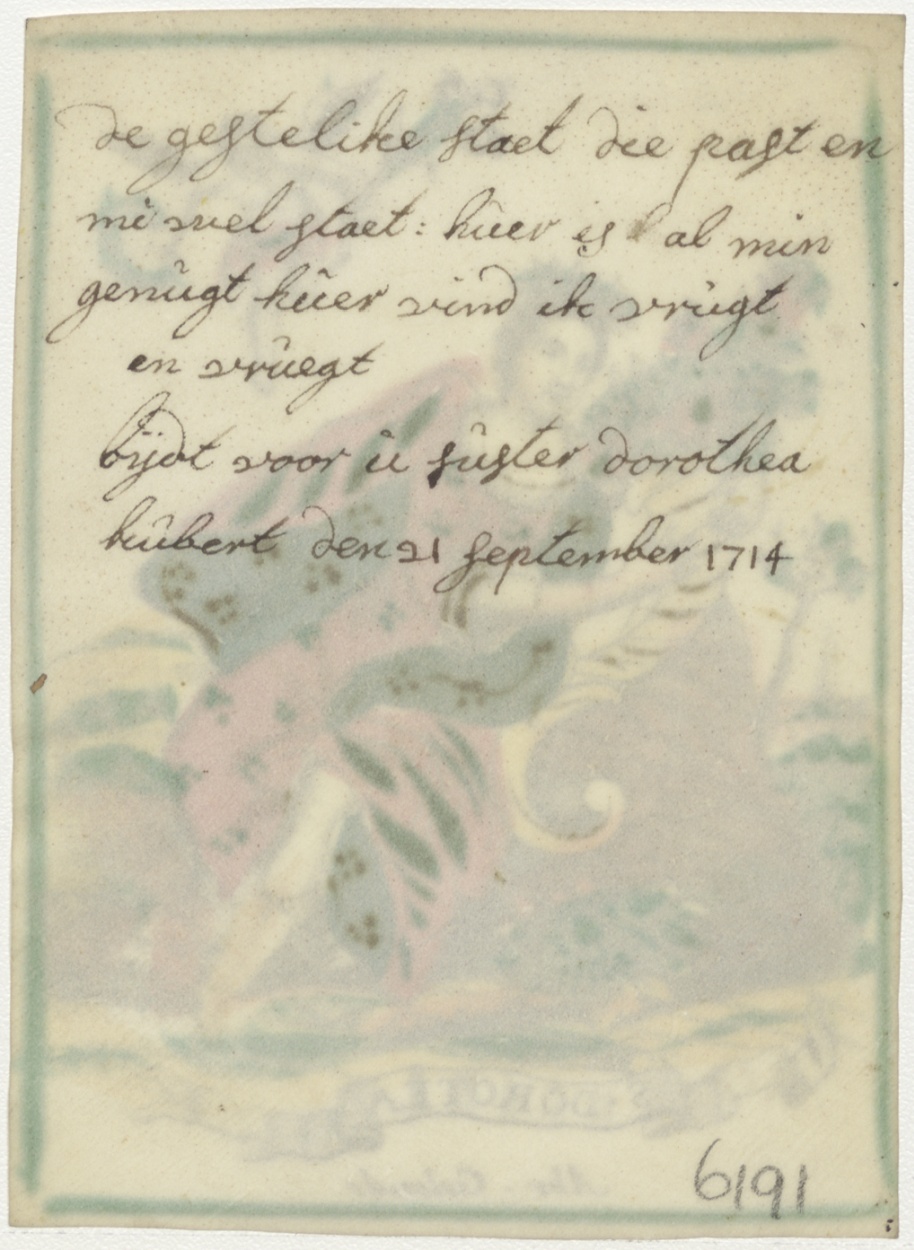 de gestelike staet die past en
mi wel staet: hûer is al min
genûgt hûer vind ik vrûgt
en vrûegt
bijdt voor û sûster dorothea
hûbert den 21 september 1714
S·DOROTEA
6191